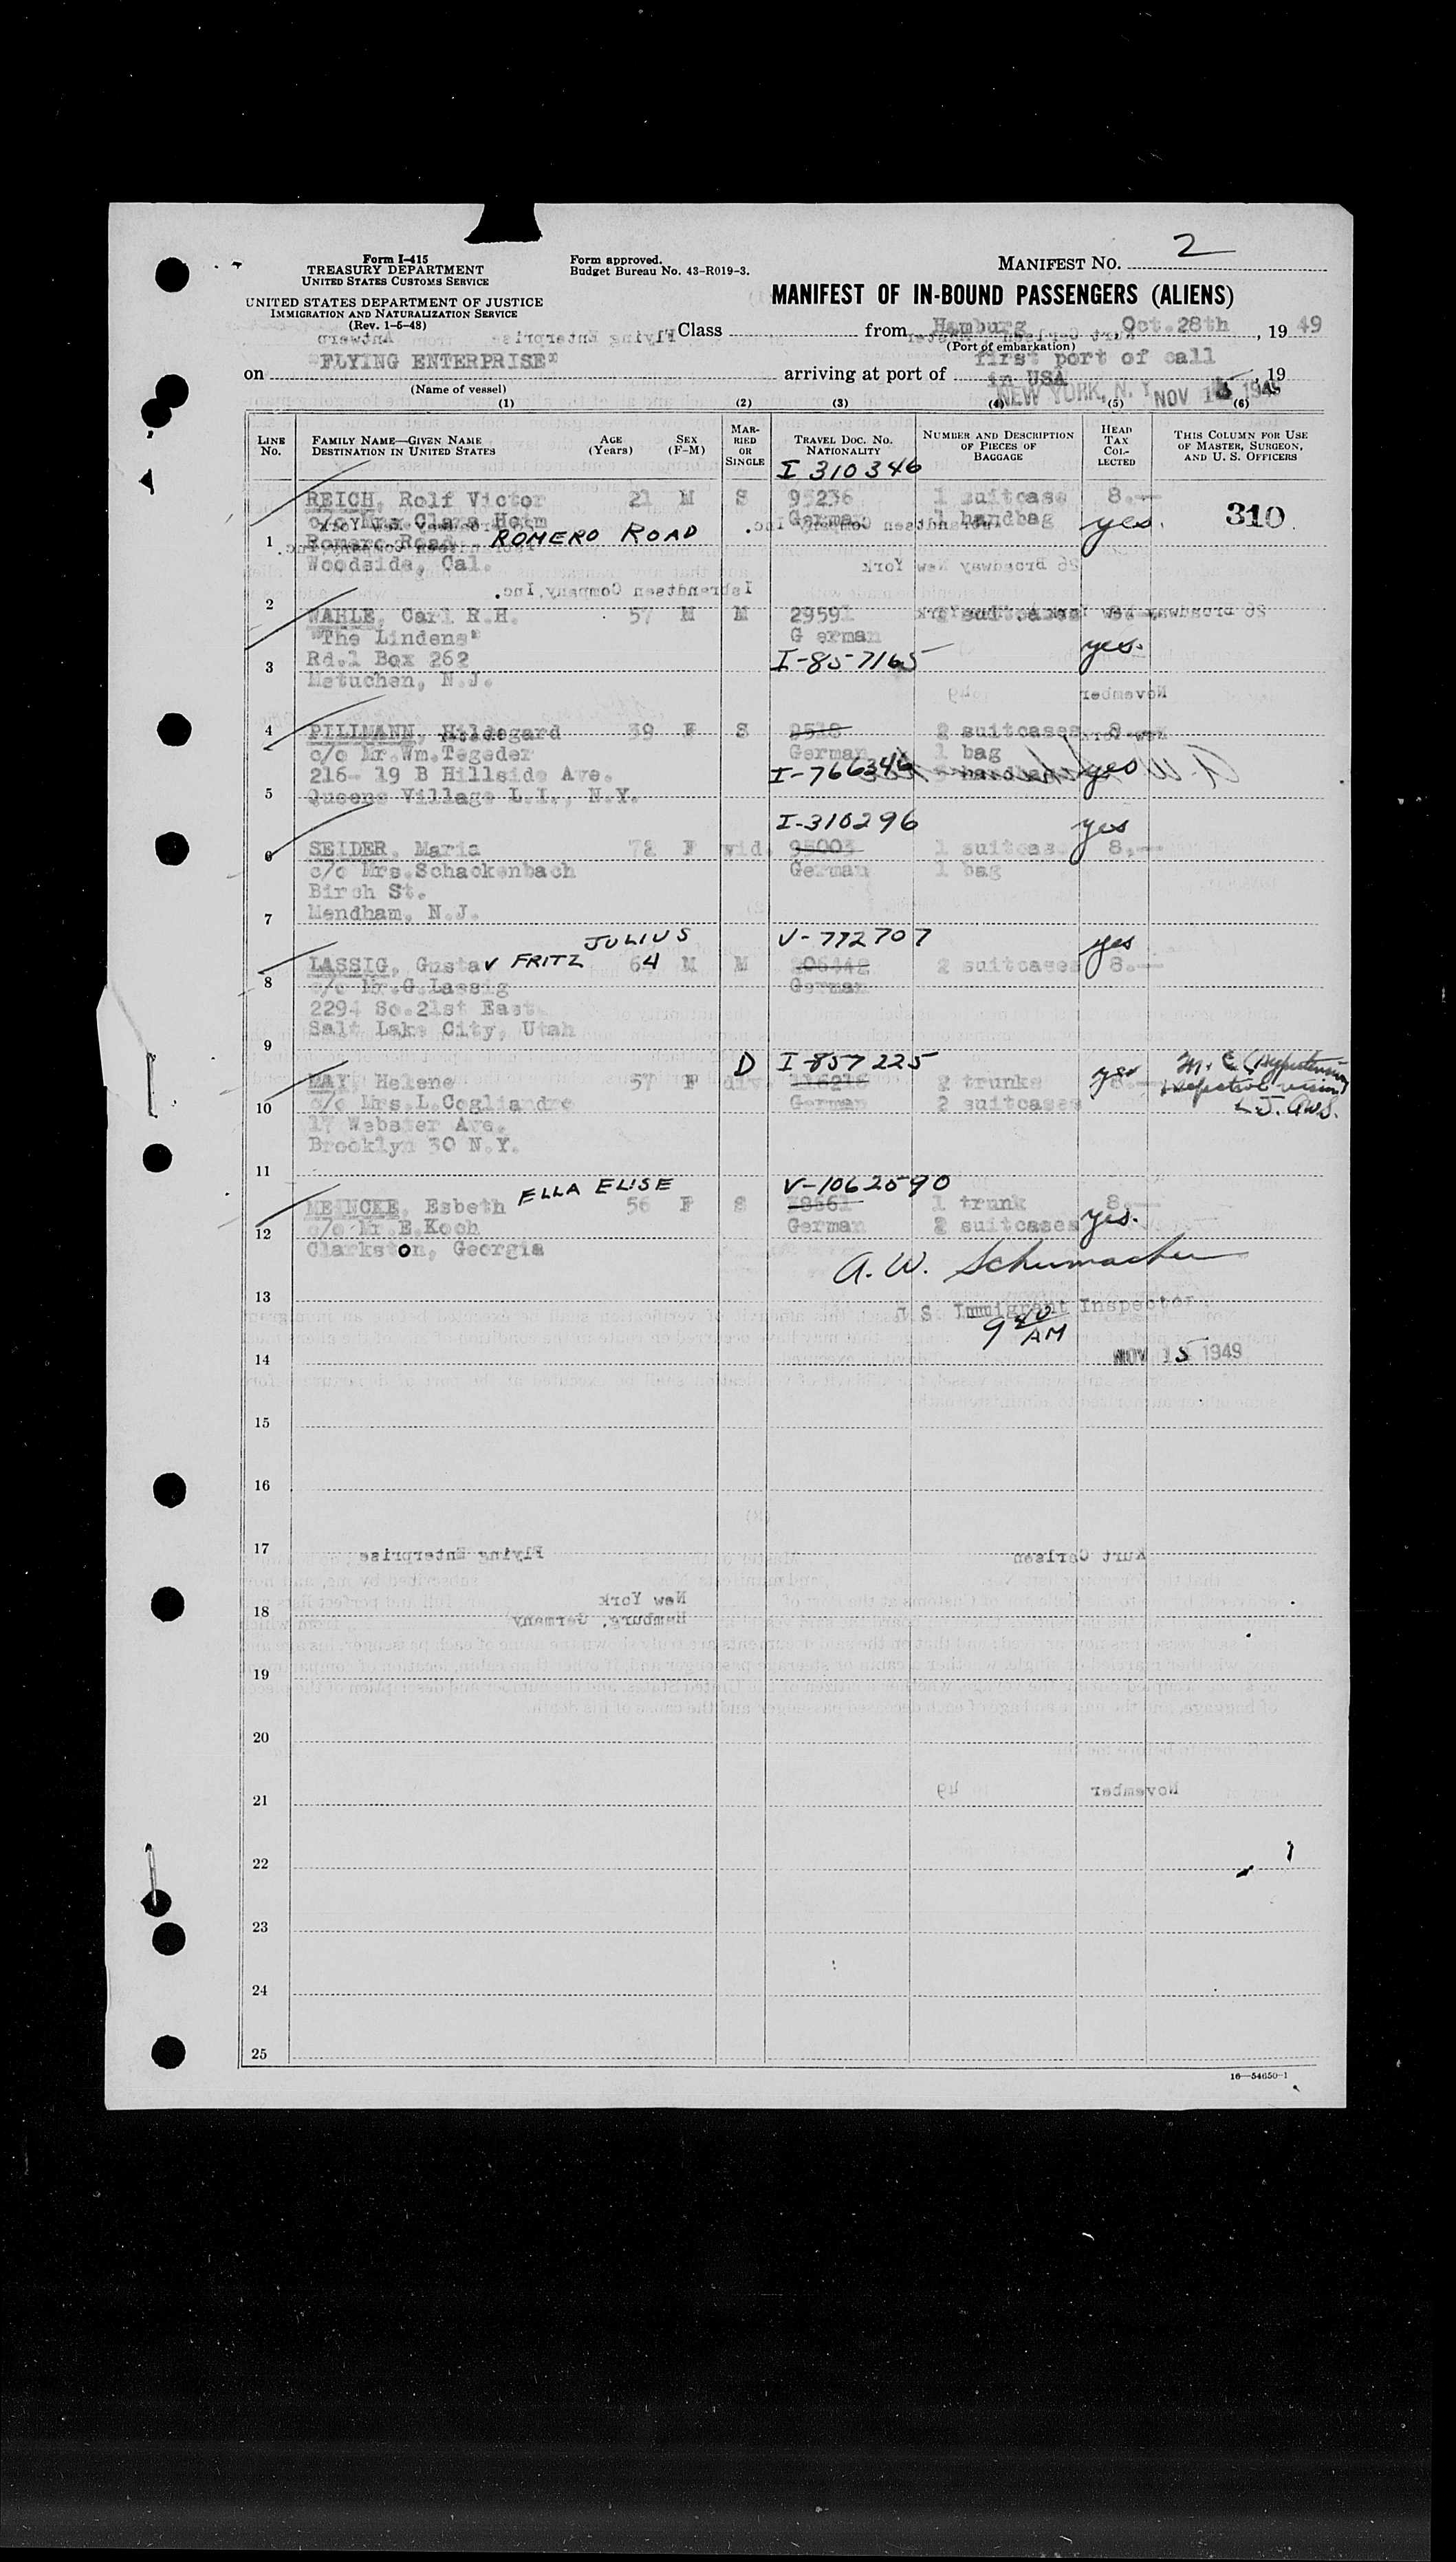 Form I-415
TREASURY DEPARTMENT
UNITED STATES CUSTOMS SERVICE
UNITED STATES DEPARTMENT OF JUSTICE
IMMIGRATION AND NATURALIZATION SERVICE
(Rev. 1-5-48)
Form approved.
Budget Bureau No. 43-R019-3.
MANIFEST NO. 2
MANIFEST OF IN-BOUND PASSENGERS (ALIENS)
Class from Hamburg, Oct.28th, 1949
(Port of embarkation)
on "FLYING ENTERPRISE" arriving at port of first port of call in USA, 19
(Name of vessel)
NEW YORK, N. Y. NOV 15 1949
(1) (2) (3) (4) (5) (6)
LINE No. FAMILY NAME—GIVEN NAME DESTINATION IN UNITED STATES AGE (Years) SEX (F-M) MARRIED OR SINGLE TRAVEL DOC. NO. NATIONALITY NUMBER AND DESCRIPTION OF PIECES OF BAGGAGE HEAD TAX COLLECTED THIS COLUMN FOR USE OF MASTER, SURGEON, AND U. S. OFFICERS
I 310346
REICH, Rolf Victor 21 M S 95236 1 suitcase 8.—
c/o Mrs. Clara Horm German 1 handbag yes. 310
1 Romero Road - ROMERO ROAD
Woodside, Cal.
2
WAHLE, Carl R.H. 57 M M 29591 suitcases 8.—
"The Lindens" German yes.
3 Rd.1 Box 262 I-857165
Metuchen, N.J.
4 PILLMANN, Hildegard 39 F S 9518 2 suitcases 8.—
c/o Mr.Wm.Tegeder German 1 bag
216- 19 B Hillside Ave. I-766346 yes
5 Queens Village L.I., N.Y.
I-310296 yes
6 SEIDER, Maria 72 F wid. 95003 1 suitcase 8.—
c/o Mrs.Schackenbach German 1 bag
Birch St.
7 Mendham, N.J.
JULIUS V-772707 yes
LASSIG, Gustav FRITZ 64 M M 2 suitcases 8.—
8 c/o Mr.G.Lassig German
2294 So.21st East
Salt Lake City, Utah
9
D I-857225 yes M. C. (Hypertension
MAY, Helene 57 F div. 2 trunks 8.— defective vision)
10 c/o Mrs.L.Cogliandro German 2 suitcases
17 Webster Ave.
Brooklyn 30 N.Y.
11
ELLA ELISE V-1062590
MEINCKE, Esbeth 56 F S 1 trunk 8.—
12 c/o Mr.E.Koch German 2 suitcases yes.
Clarkston, Georgia
A. W. Schumacher
13
U. S. Immigrant Inspector.
9 40 AM
14 NOV 15 1949
15
16
17
18
19
20
21
22
23
24
25
16—54650-1